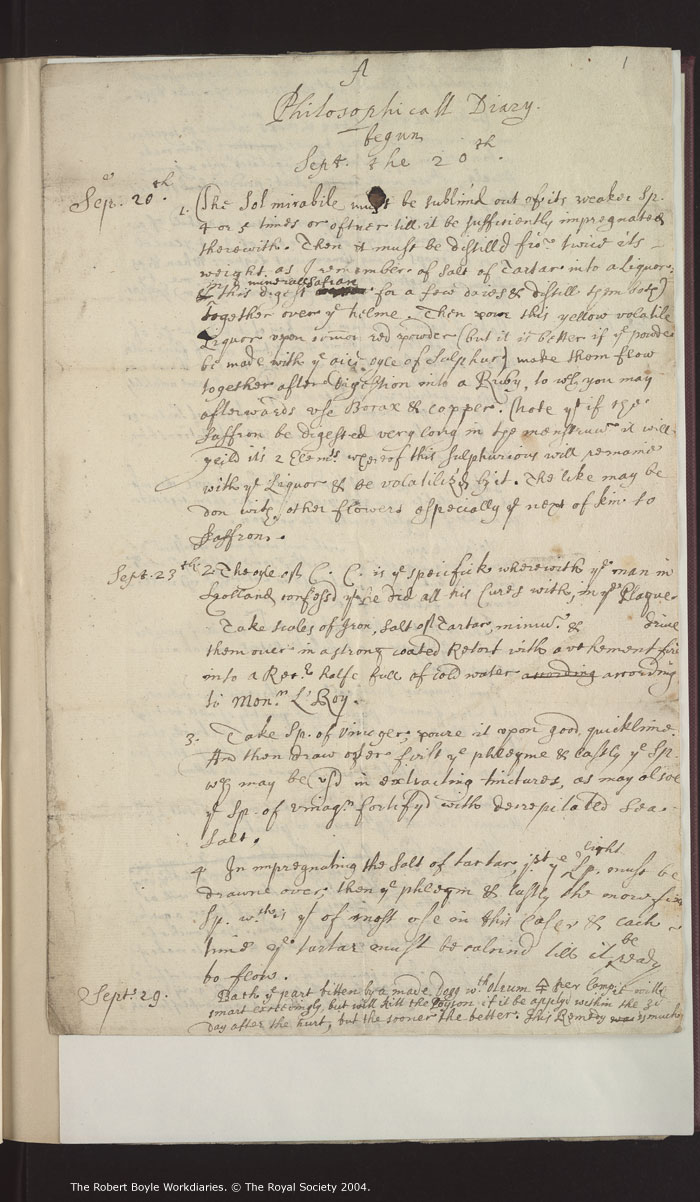 A
1
Philosophicall Diary.
begun
Sept. the 20th.
Sep. 20th. 1. (The Sol mirabile must be sublim'd out of its weaker Sp.
4 or 5 times or oftner till it be sufficiently impregnated
therewith. Then it must be distilld fro. twice its
weight, as I remember of Salt of Tartar into a Liquor,
this digest for a few daies & distill them both)
minerall Safran
together over ye helme. Then pour this yellow volatile
Liquor upon red powder (but it is better if ye powder
be made with ye oyle of Sulphur) make them flow
together after Digestion into a Ruby, to wch you may
afterwards use Borax & Copper. (Note yt if the
Saffron be digested very long in the menstruum it will
yeild its 2 Elemts wherof this Sulphurious will remaine
with ye Liquor & be volatiliz'd by it. The like may be
don with other flowers especially ye next of kin to
Saffron.
Sept. 23th 2. The oyle of C. C. is ye specifick wherewith ye man in
Scotland confess'd yt he did all his Cures with, in ye Plague.
Take scales of Iron, Salt of Tartar, minium & drive
them over in a strong coated Retort with a vehement fire
into a Recr halfe full of cold water according according
to Monr. L'Roy.
3. Take Sp. of Vineger, poure it upon good quicklime.
And then draw over first ye phlegme & lastly ye Sp.
wch may be us'd in extracting tinctures, as may also
ye Sp. of vinagr fortify'd with decrepitated Sea-
Salt.
4 In impregnating the Salt of tartar, ye light
Sp. must be
drawne over, then ye phlegm & lastly the more fix
Sp. wch is yt of most use in this Case, & each
time ye tartar must be calcind till it be ready
to flow.
Sept. 29. Bath ye part bitten by a madd Dogg wth oleum per Camp. it will
smart exceedingly, but will kill the Poyson if it be apply'd within the 3d
day after the hurt, but the sooner the better. This Remedy was is much
The Robert Boyle Workdiaries. © The Royal Society 2004.